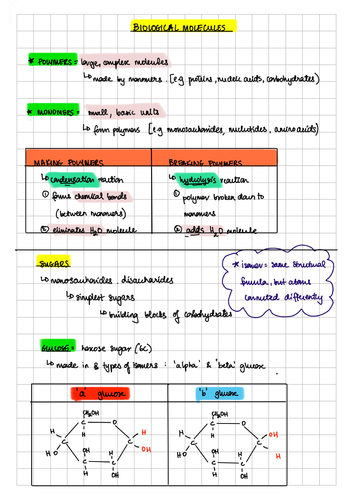 BIOLOGICAL MOLECULES
* POLYMERS = large, complex molecules
↳ made by monomers. [e.g proteins, nucleic acids, carbohydrates)
* MONOMERS = small, basic units
↳ form polymers [e.g monosaccharides, nucleotides, amino acids)
MAKING POLYMERS
↳ condensation reaction
① forms chemical bonds
(between monomers)
② eliminates H₂O molecule
BREAKING POLYMERS
↳ hydrolysis reaction
① polymer broken down to
monomers
② adds H₂O molecule
SUGARS
↳ monosaccharides disaccharides
↳ simplest sugars
↳ building blocks of carbohydrates
* isomer = same structural
formula, but atoms
connected differently
GLUCOSE = hexose sugar (6C)
↳ made in 2 types of isomers : 'alpha' & 'beta' glucose
'a' glucose
CH₂OH
H
C
O
H
C
H
C
HO
OH
H
C
C
H
OH
OH
'b' glucose
CH₂OH
H
C
O
OH
C
H
C
HO
OH
H
C
C
H
OH
H